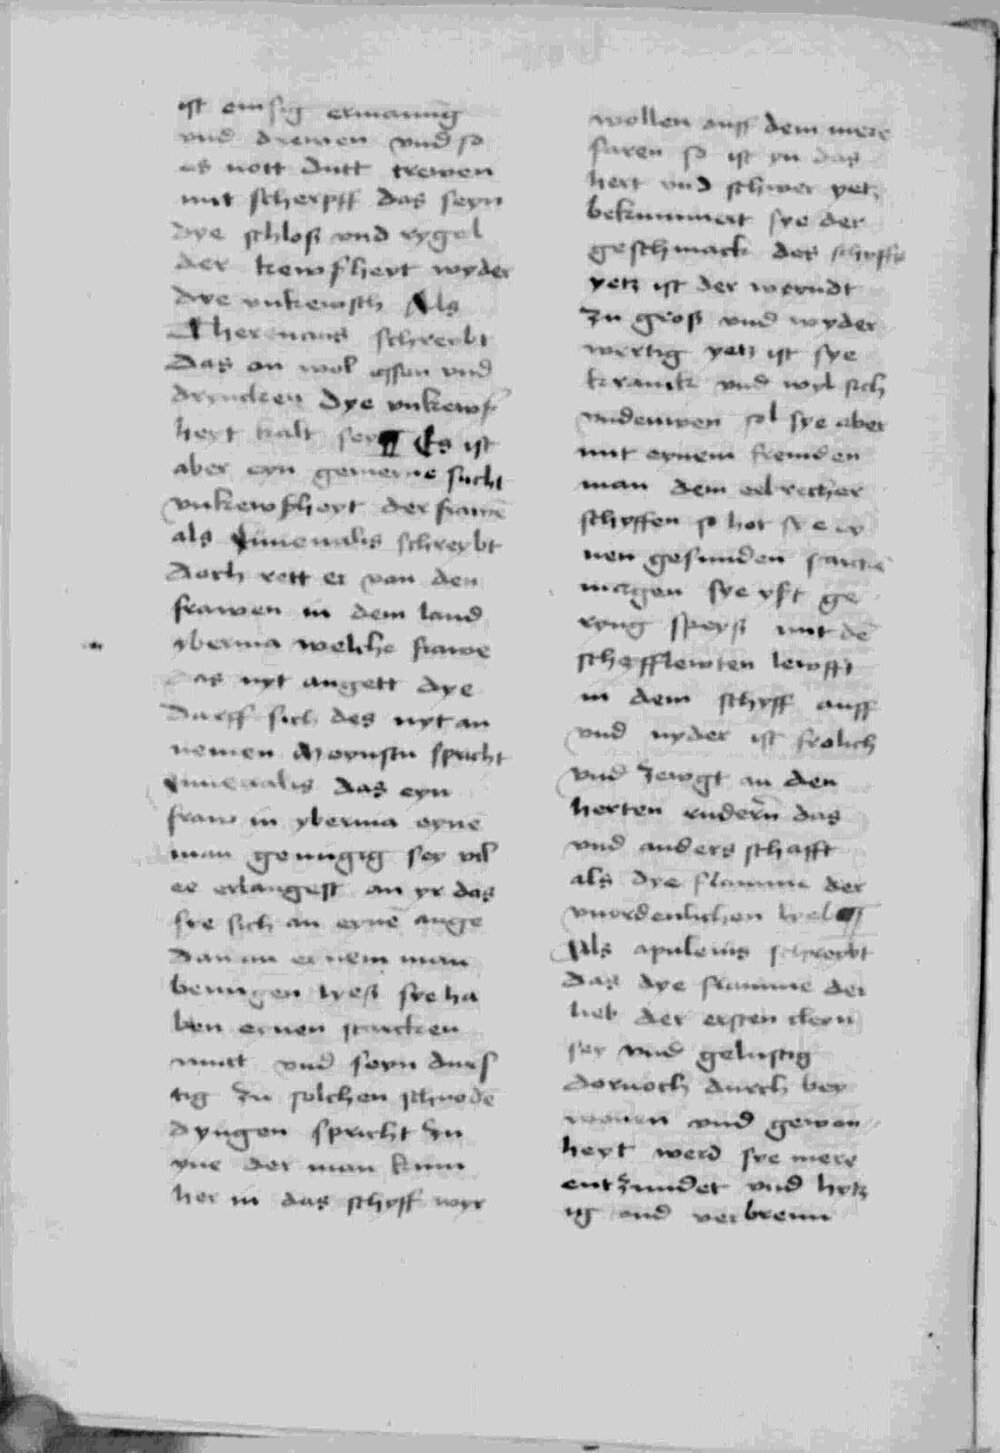 ist emsig ermanung
vnd drewen vnd so
es nott dutt trewen
mit scherpff das seyn
dye schloß vnd rygel
der kewscheyt wyder
dye vnkewsch Als
Therencius schreybt
Das on wol essen vnd
dryncken dye vnkewsch
heyt kalt sey ¶ Es ist
aber eyn gemeyne sucht
vnkewscheyt der frawē
als Juuenalis schreybt
doch rett er von den
frawen in dem land
yberina welche frawe
das nyt angett dye
darff sich des nyt an
nemen Moynstu spricht
Juuenalis das eyn
fraw in yberina eyne
man genugig sey vil
ee erlangest an yr das
sye sich an eynē auge
dan an eynem man
benugen lyeß sye ha
ben eynen starcken
mutt vnd seyn durs
tig zu solchen schnodē
dyngen spricht zu
yne der man kum
her in das schyff wyr
wollen auff dem mere
faren so ist yn das
hert vnd schwer yetz
bekummert sye der
geschmack des schyffs
yetz ist der wyndt
zu groß vnd wyder
wertig yetz ist sye
kranck vnd wyl sich
vndeuwen sol sye aber
mit eynem fremden
man dem eebrecher
schyffen so hot sye ey
nen gesunden starckē
magen sye yst ge
ryng speyß mit dē
schyfflewten lewfft
in dem schyff auff
vnd nyder ist frolich
vnd zewgt an den
herten rudern das
vnd anders schafft
als dye flamme der
vnordenlichen lyeb ¶
Als apuleius schreybt
das dye flamme der
lieb der ersten cleyn
sey vnd gelustig
dornoch durch bey
wonen vnd gewon
heyt werd sye mere
entzundet vnd hytz
ig vnd verbrenn